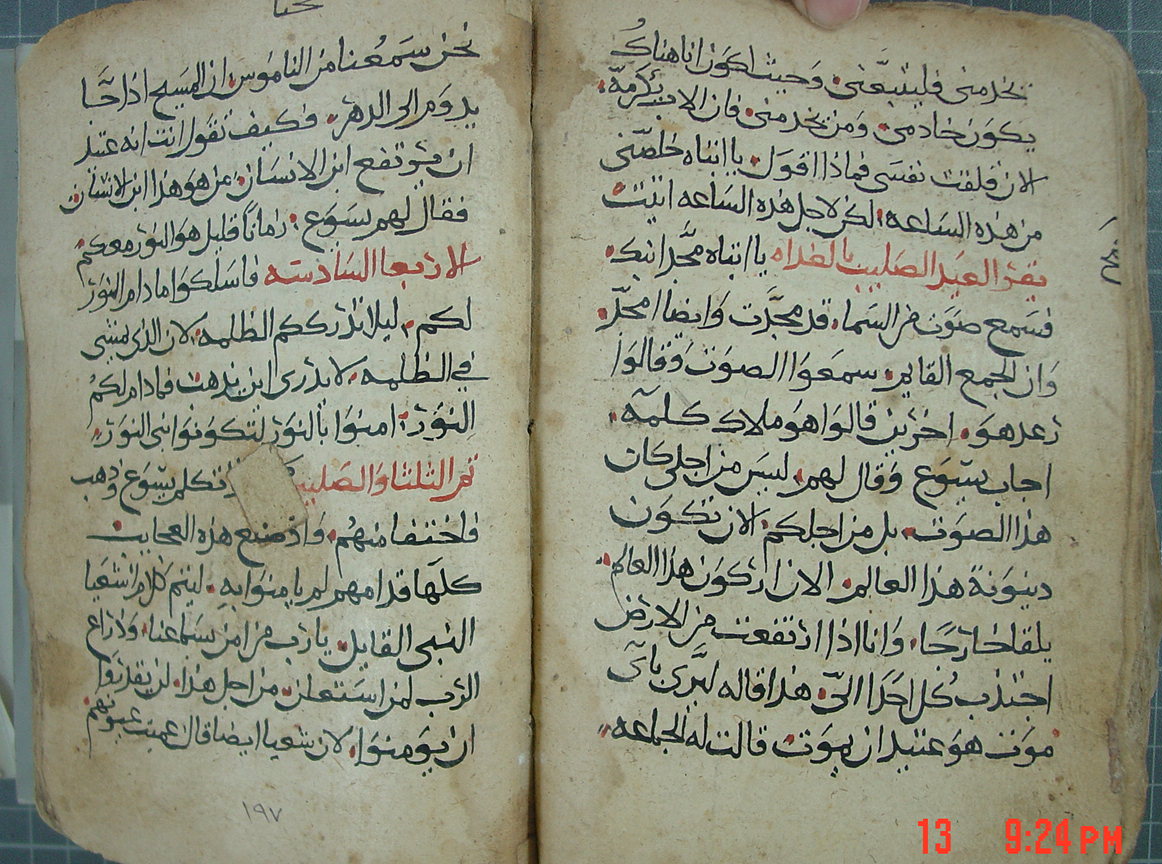 يخدمني فليتبعني. وحيث اكون انا هناك
يكون خادمي. ومن يخدمني. فان الاب يكرمه.
الان قلقت نفسي فماذا اقول. يا ابتاه خلصني
من هذه الساعه. لكن لاجل هذه الساعه اتيت
يقرا لعيد الصليب بالغداه يا ابتاه مجد ابنك.
فسمع صوت من السما. قد مجدت وايضا امجد.
وان الجمع القايم. سمعوا الصوت وقالوا
رعد هو. اخرين قالوا هو ملاك كلمه.
اجاب يسوع وقال لهم. ليس من اجلي كان
هذا الصوت. بل من اجلكم. الان تكون
دينونة هذا العالم. الان اركون هذا العالم.
يلقا خارجا. وانا اذا ارتفعت من الارض
اجتذب كل احدا اليّ. هذا قاله ليري باي
موت هو عتيد ان يموت قالت له الجماعه.
نحن سمعنا من الناموس. ان المسيح اذا جا
يدوم الى الدهر. فكيف تقول انت انه عتيد
ان يرتفع ابن الانسان. من هو هذا ابن الانسان
فقال لهم يسوع. زمانا قليل هو النور معكم
الاربعا السادسه فاسلكوا ما دام النور
لكم. ليلا تدرككم الظلمه. لان الذي يمشي
في الظلمه. لا يدري اين يذهب فما دام لكم
النور. امنوا بالنور لتكونوا بني النور.
تم الثلثا والصليب تكلم يسوع وذهب
فاختفا منهم. واذ صنع هذه العجايب
كلها قدامهم لم يامنوا به. ليتم كلام اشعيا
النبي القايل. يا رب من امن بسماعنا. وذراع
الرب لمن استعلن. من اجل هذا. لن يقدروا
ان يومنوا. لان شعيا ايضا قال عميت عيونهم
١٩٧
13 9:24 PM